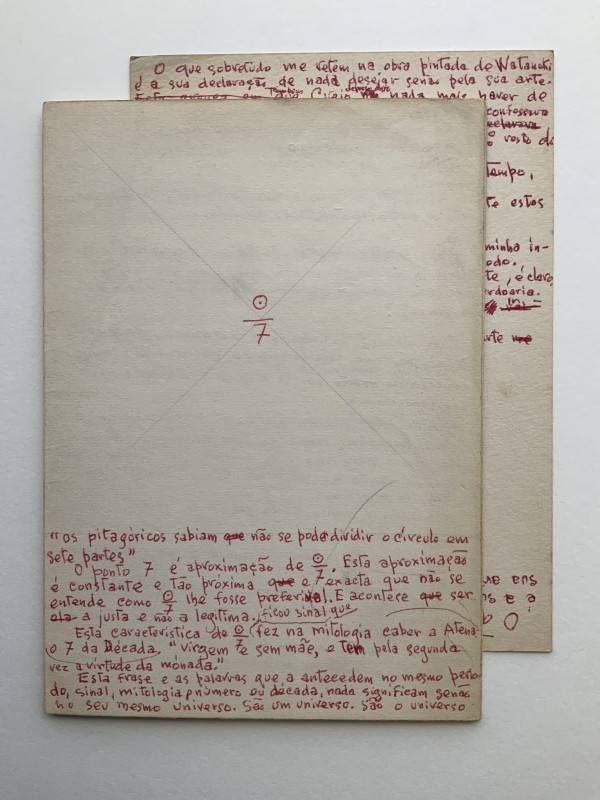 O que sobretudo me retem na obra pintada de
é a sua declaração de nada desejar senão pela sua arte.
nada mais haver de
confessava
declarava
rosto do
tempo,
te estos
minha in-
odo.
te, é claro
rdoaria.
arte me
☉
7
"os pitagóricos sabiam que não se pode dividir o círculo em
sete partes"
O ponto 7 é aproximação de ☉/7. Esta aproximação
é constante e tão próxima que e 7 exacta que não se
entende como ☉/7 lhe fosse preferivel. E acontece que ser
ela a justa e não a legítima. ficou sinal que
Esta característica de ☉/7 fez na mitologia caber a Atena
o 7 da Década, "Virgem e sem mãe, e tem pela segunda
vez a virtude da mónada."
Esta frase e as palavras que a antecedem no mesmo perio-
do, sinal, mitologia, número ou década, nada significam senão
no seu mesmo universo. São um universo. São o universo